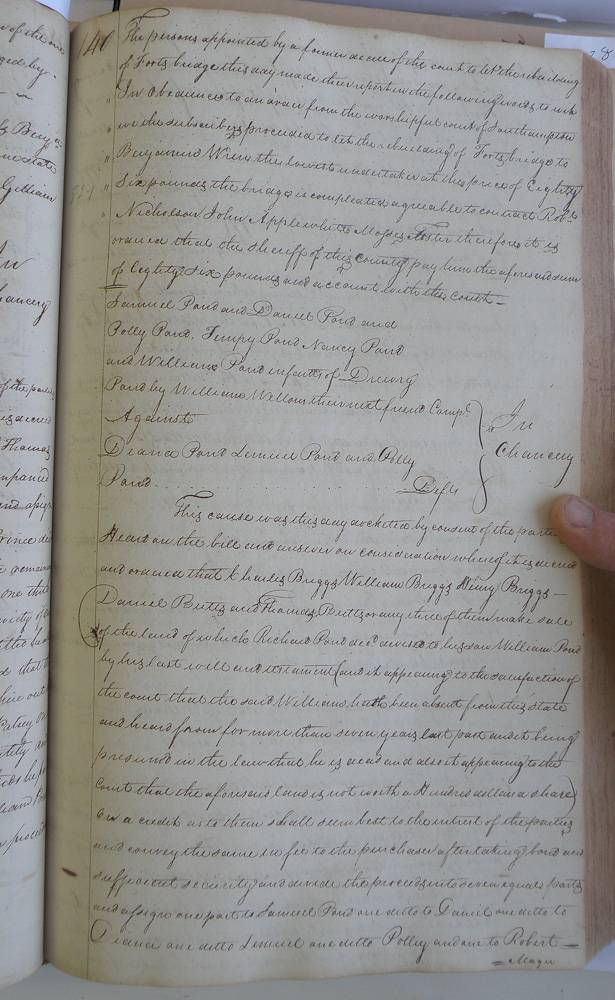 140 The persons appointed by a former decree of the court to let the rebuilding
of Forts bridge this day made their report in the following words to wit
" In Obedience to an order from the worshipful court of Southampton
" we the subscribers proceeded to let the rebuilding of Forts bridge to
" Benjamin Wren the lowest undertaker at the price of Eighty
" Six pounds, the bridge is compleated agreeable to contract Robt.
" Nicholson John Applewhite Moses Foster therefore it is
ordered that the Sheriff of this county pay him the aforesaid sum
of Eighty Six pounds and account with the court
Samuel Pond and Daniel Pond and
Polly Pond, Tempy Pond Nancy Pond
and William Pond infants of Drewry
Pond by William Wellons their next friend Compt.
Against
In
Chancery
Diana Pond Lemuel Pond and Polly
Pond Defts
This cause was this day docketed by consent of the parties
Heard on the bill and answer on consideration whereof it is decreed
and ordered that Charles Briggs William Briggs Henry Briggs
Daniel Butts and Thomas Butts or any three of them make sale
of the land of which Richard Pond decd. devised to his son William Pond
by his last will and testament (and it appearing to the satisfaction of
the court that the said William hath been absent from this state
and heard from for more than seven years last past and it being
presumd in the law that he is dead and also it appearing to the
court that the aforesaid land is not worth a Hundred dollars a share)
on a credit as to them shall seem best to the interest of the parties
and convey the same in fee to the purchaser after taking bond and
sufficient security and divide the proceeds into seven equal parts
and assign one part to Samuel Pond one ditto to Daniel one ditto to
Diana one ditto Lemuel one ditto Polley and one to Robert
Magee